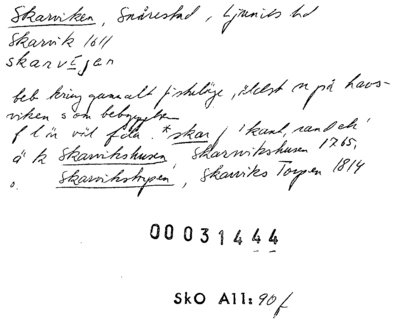 Skarviken, Snårestad, Ljunits hd
Skarvik 1611
skarvijen
beb kring gammalt fiskeläge, äldst n på havs-
viken som bebyggelsen
f l är väl fda. *skar, 'kant, rand ck'
ä k Skarvikshusen, Skarvikshusen 1765,
o. Skarvikstorpen, Skarviks Torpen 1814
00031444
SkO All: 90 f